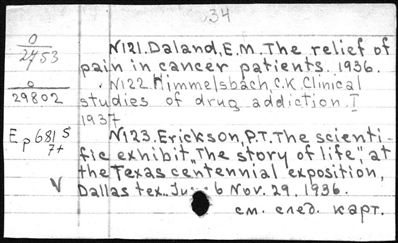 34
0
2753
N121. Daland, E.M. The relief of
pain in cancer patients. 1936.
0
29802
N122. Himmelsbach, C.K. Clinical
studies of drug addiction. I
1937.
Ep 681 5
7+
N123. Erickson, P.T. The scienti-
fic exhibit „The story of life", at
the Texas centennial exposition,
V
Dallas tex. 6 Nov. 29. 1936.
см. след. карт.